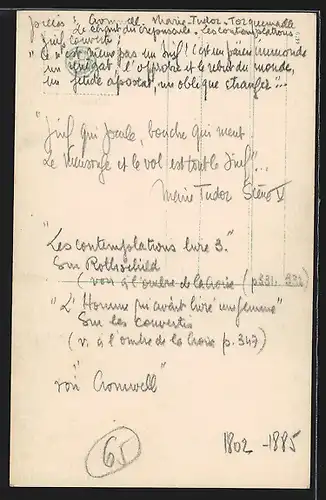 Cromwell, Marie-Tudor, Torquemada
Le chant du crépuscule. Les contemplations
Juif converti
"Ce n'est même pas un Juif! C'est un païen immonde
un renégat, l'opprobre et le rebut du monde,
un fétide apostat, un oblique étranger"...
"Juif qui parle, bouche qui ment
Le mensonge et le vol est tout le Juif"...
Marie Tudor Scène V
"Les contemplations livre 3."
Sur Rothschild
(voir à l'ombre de la Croix (p 331,
"L'Homme qui avait livré une femme"
Sur les convertis
(v. à l'ombre de la Croix p. 347)
voir "Cromwell"
65
1802 - 1885